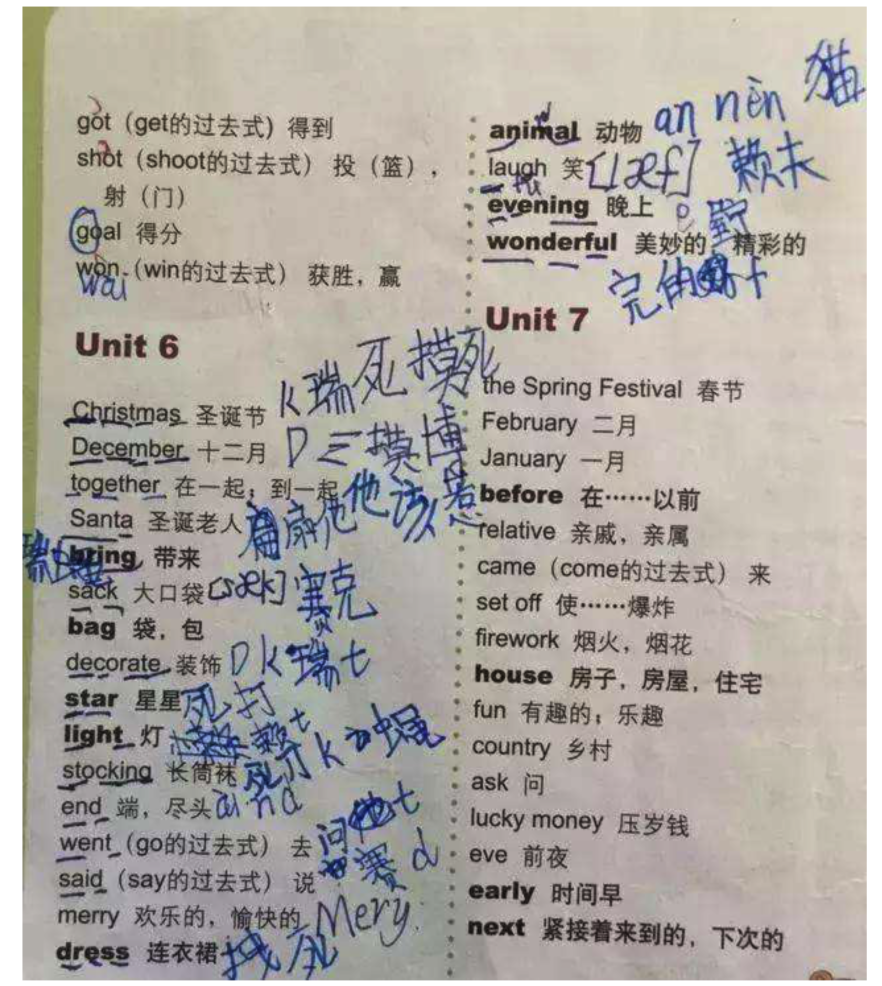 got（get的过去式）得到
shot（shoot的过去式）投（篮），
射（门）
goal 得分
won（win的过去式）获胜，赢
wai
Unit 6
Christmas 圣诞节 K瑞死摸死
December 十二月 D三摸博
together 在一起；到一起 他该
Santa 圣诞老人 扇他
bring 带来
sack 大口袋 [sæk] 赛克
bag 袋，包
decorate 装饰 D K瑞t
star 星星 死打
light 灯 赖t
stocking 长筒袜 死 K
end 端，尽头 ai nd
went（go的过去式）去 问t
said（say的过去式）说 赛d
merry 欢乐的，愉快的 Mery
dress 连衣裙 死
animal 动物 an nèn 猫
laugh 笑 [læf] 赖夫
evening 晚上
wonderful 美妙的，精彩的
完的
Unit 7
the Spring Festival 春节
February 二月
January 一月
before 在……以前
relative 亲戚，亲属
came（come的过去式）来
set off 使……爆炸
firework 烟火，烟花
house 房子，房屋，住宅
fun 有趣的；乐趣
country 乡村
ask 问
lucky money 压岁钱
eve 前夜
early 时间早
next 紧接着来到的，下次的